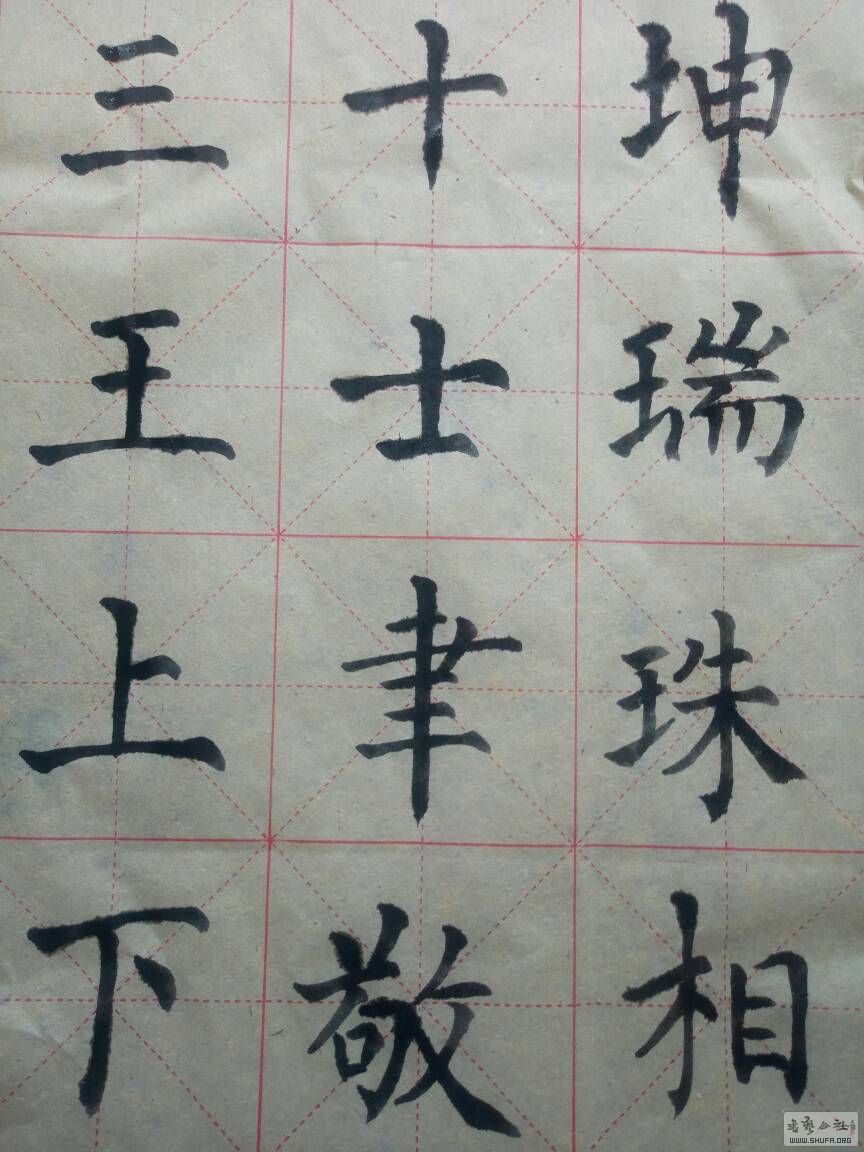 坤瑞珠相
十士聿敬
三王上下
書藝公社
WWW.SHUFA.ORG